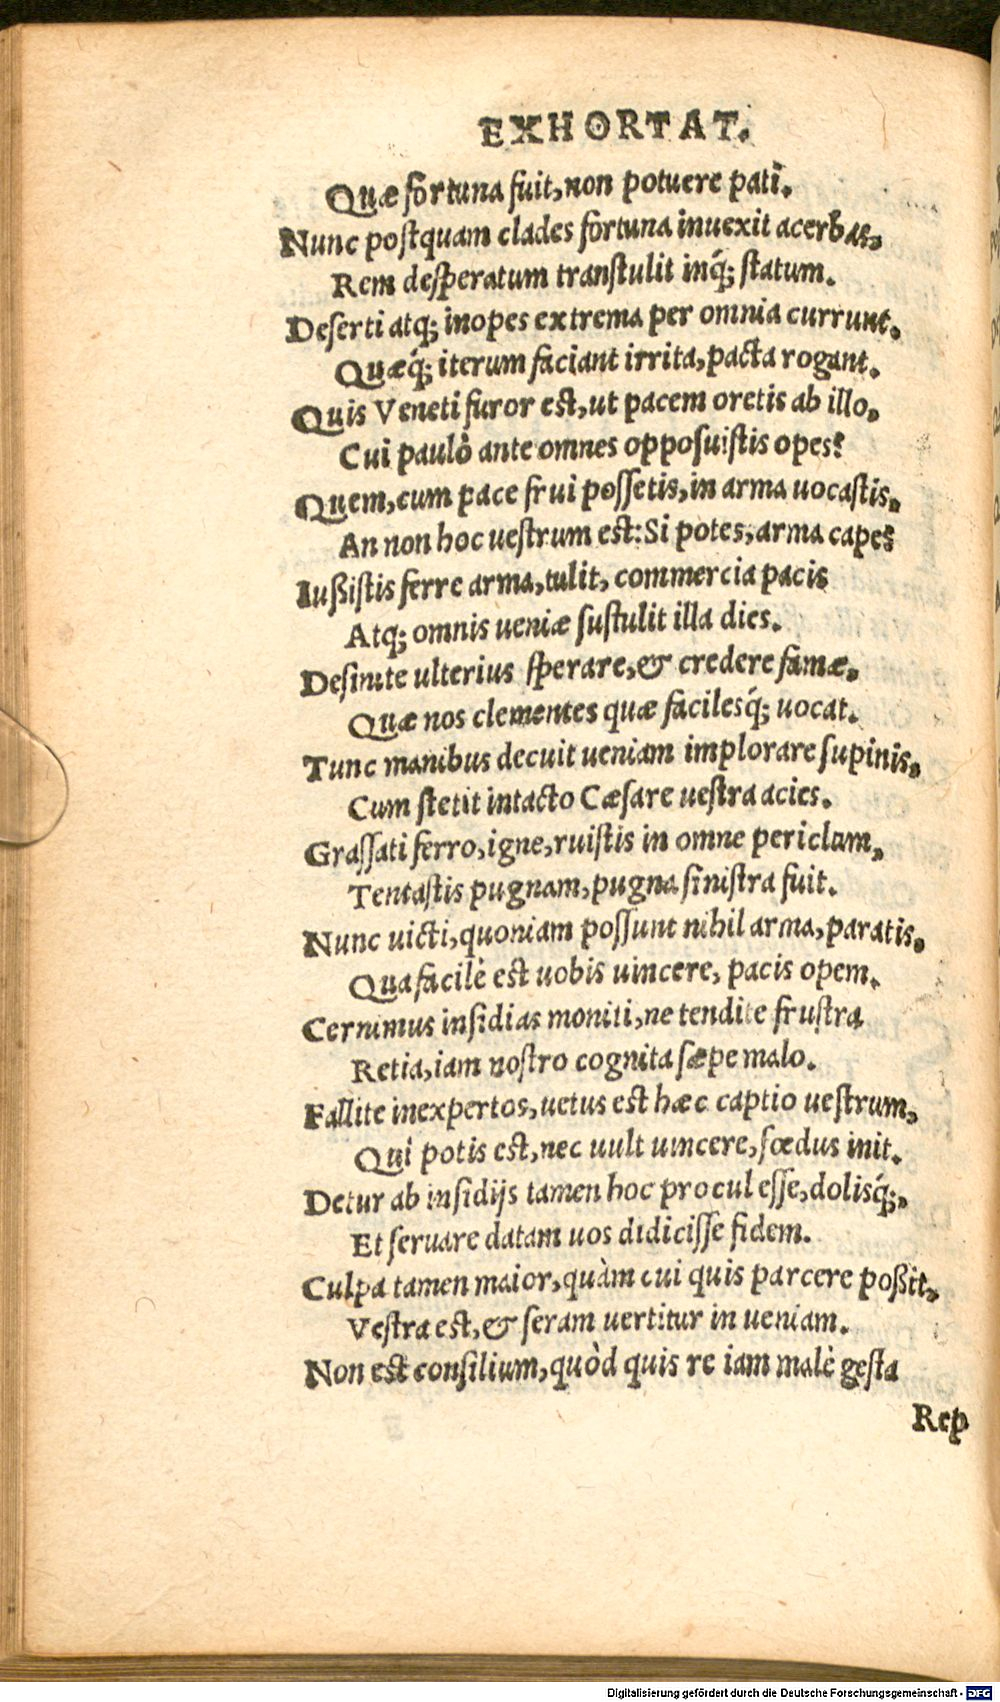 EXHORTAT.
Quæ fortuna fuit, non potuere pati.
Nunc postquam clades fortuna inuexit acerbas,
Rem desperatum transtulit inq́; statum.
Deserti atq; inopes extrema per omnia currunt,
Quæq́; iterum faciant irrita, pacta rogant.
Quis Veneti furor est, ut pacem oretis ab illo,
Cui paulò ante omnes opposuistis opes?
Quem, cum pace frui possetis, in arma uocastis,
An non hoc uestrum est: Si potes, arma cape?
Iußistis ferre arma, tulit, commercia pacis
Atq; omnis ueniæ sustulit illa dies.
Desinite ulterius sperare, & credere famæ,
Quæ nos clementes quæ facilesq́; uocat.
Tunc manibus decuit ueniam implorare supinis,
Cum stetit intacto Cæsare uestra acies.
Grassati ferro, igne, ruistis in omne periclum,
Tentastis pugnam, pugna sinistra fuit.
Nunc uicti, quoniam possunt nihil arma, paratis,
Qua facilè est uobis uincere, pacis opem.
Cernimus insidias moniti, ne tendite frustra
Retia, iam nostro cognita sæpe malo.
Fallite inexpertos, uetus est hæc captio uestrum,
Qui potis est, nec uult uincere, fœdus init.
Detur ab insidijs tamen hoc procul esse, dolisq́;,
Et seruare datam uos didicisse fidem.
Culpa tamen maior, quàm cui quis parcere poßit,
Vestra est, & seram uertitur in ueniam.
Non est consilium, quòd quis re iam malè gesta
Rep
Digitalisierung gefördert durch die Deutsche Forschungsgemeinschaft - DFG